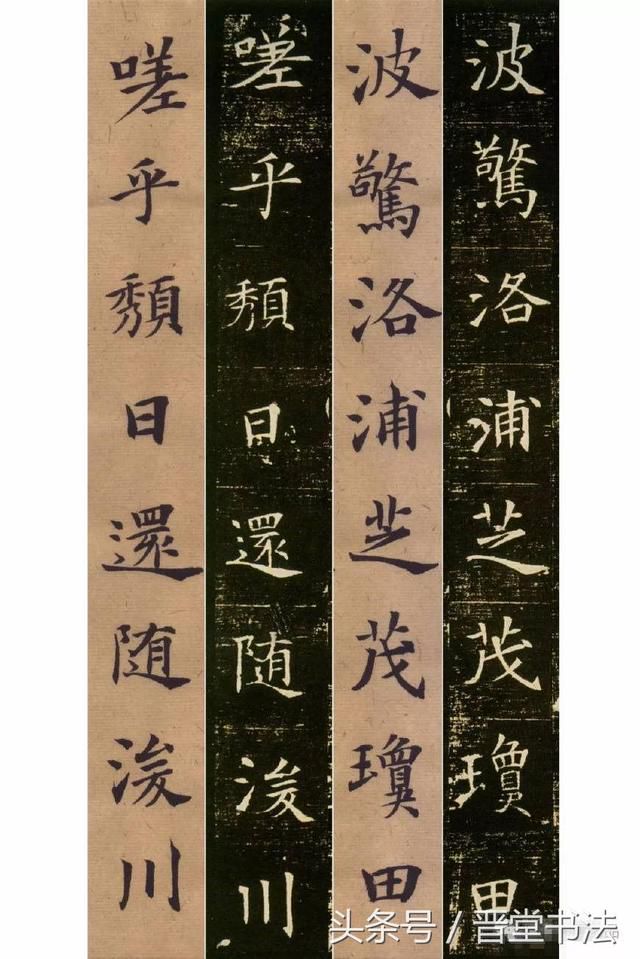 波驚洛浦芝茂瓊田
波驚洛浦芝茂瓊田
嗟乎頽日還随浚川
嗟乎頽日還随浚川
头条号 / 晋堂书法